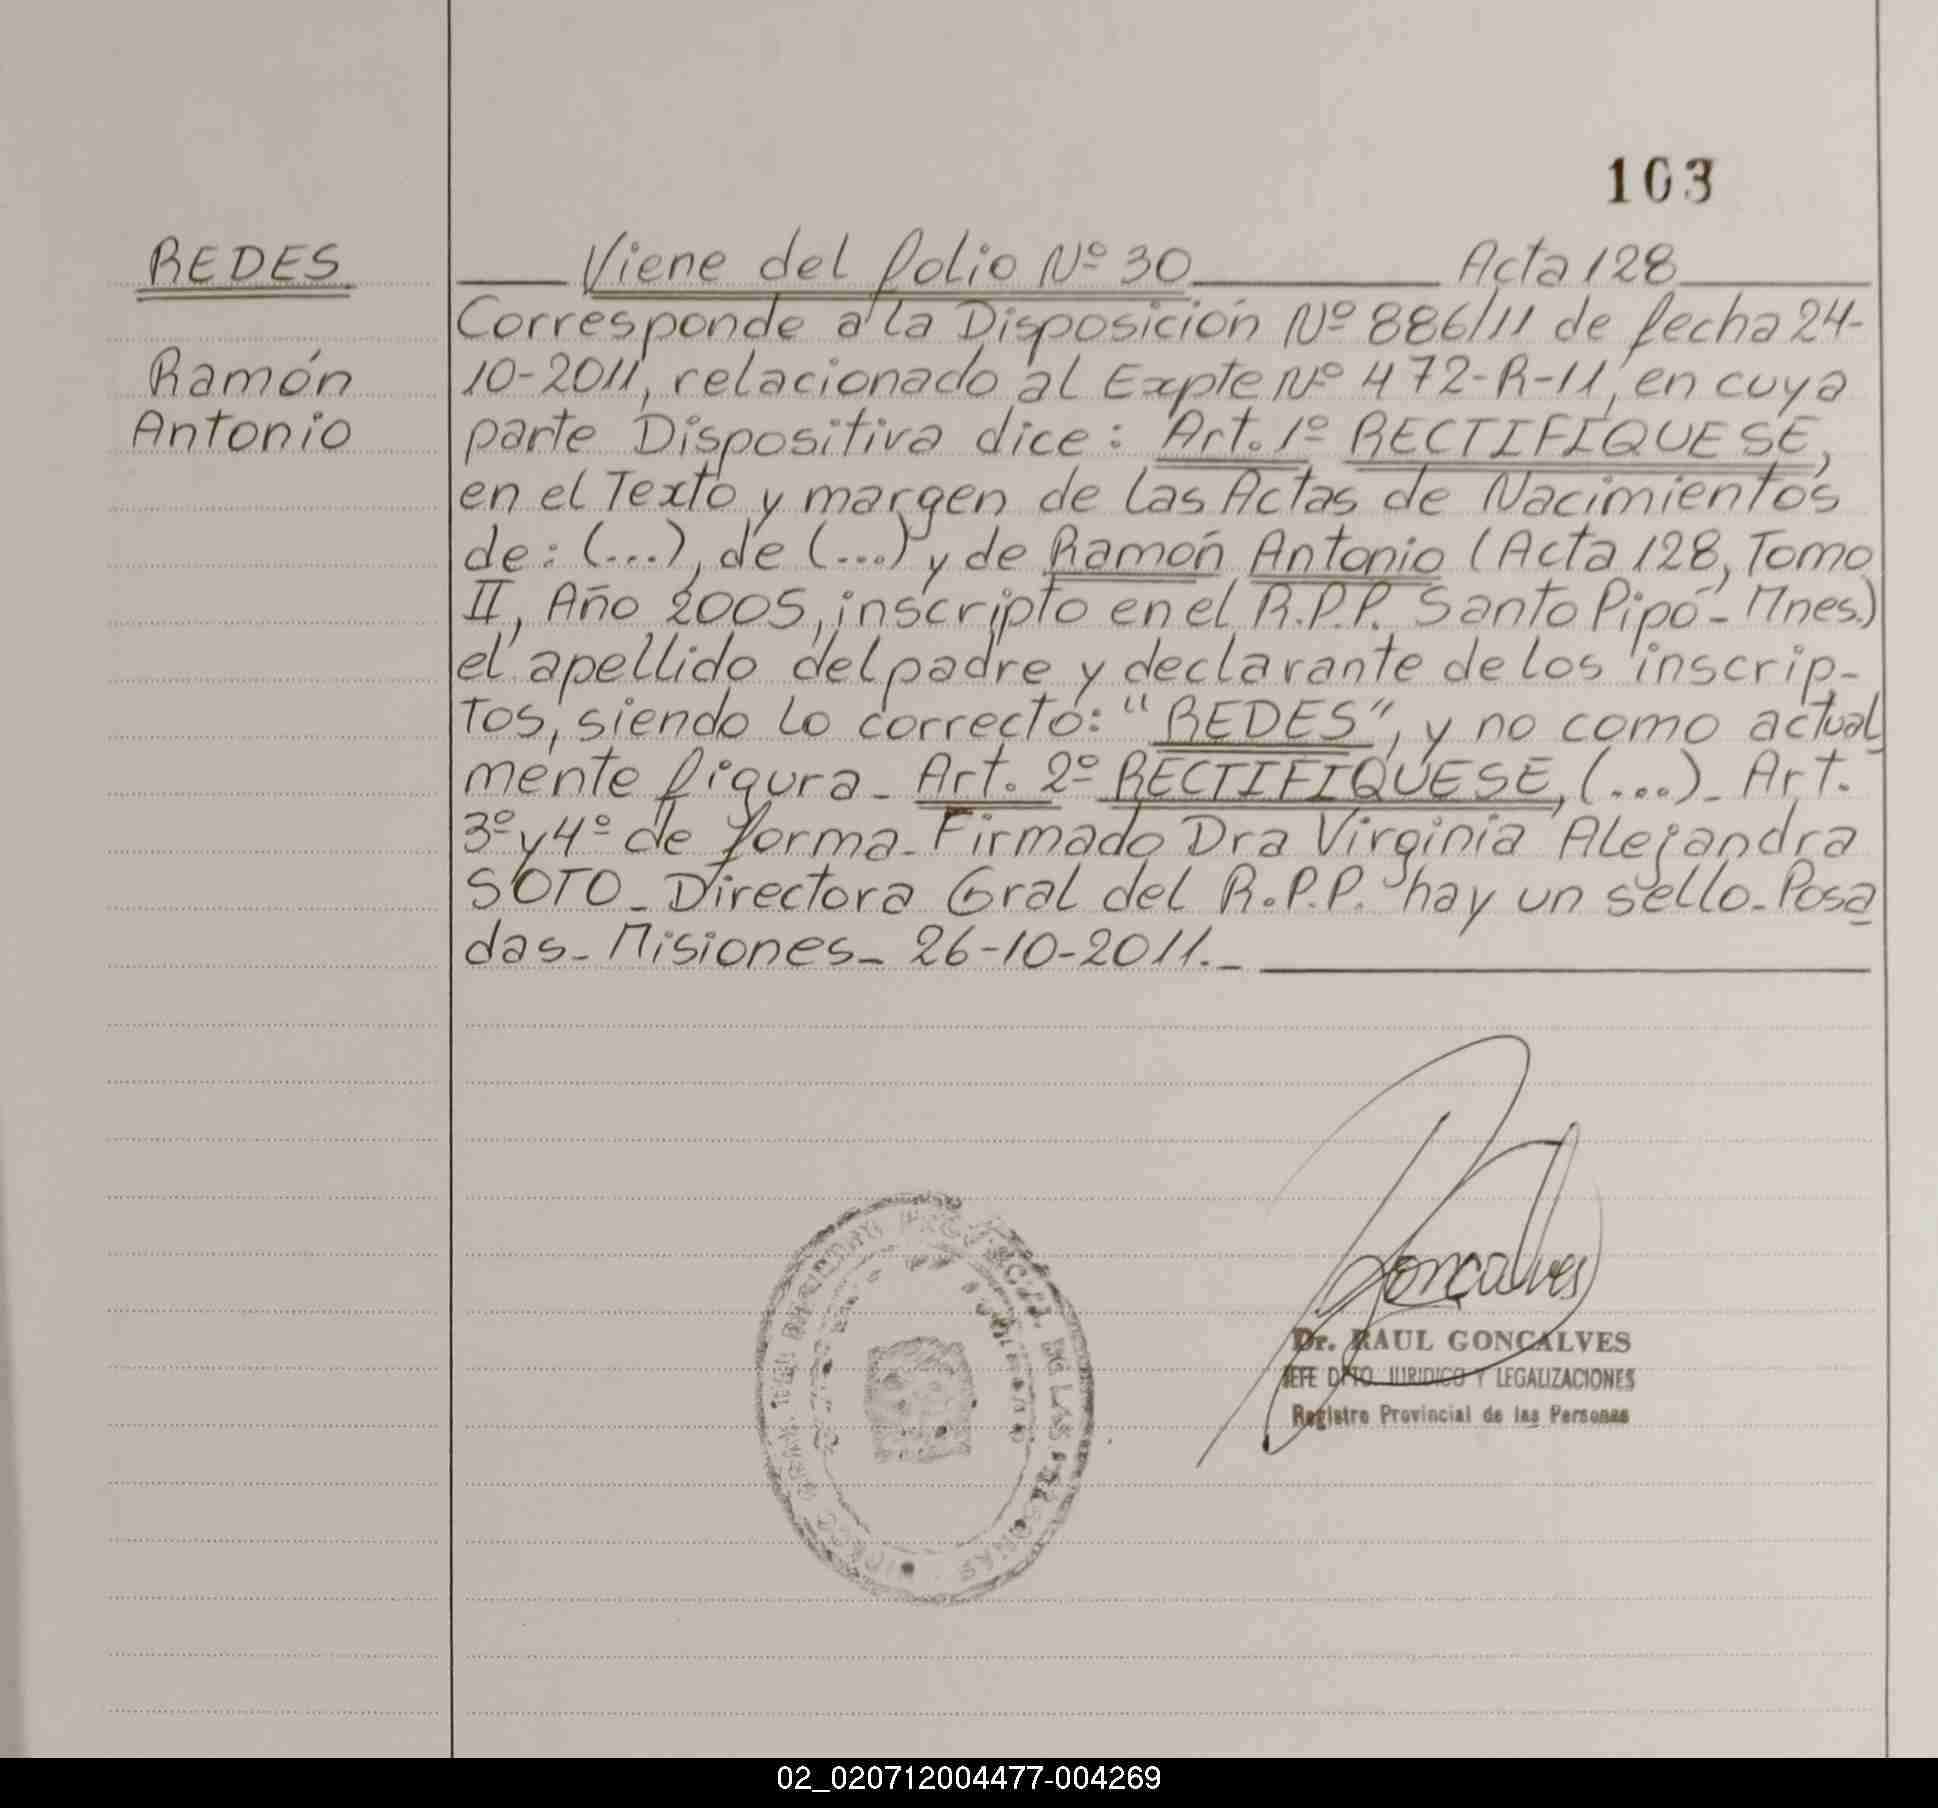 103
REDES
Ramón
Antonio
Viene del folio Nº 30 Acta 128
Corresponde a la Disposición Nº 886/11 de fecha 24-
10-2011, relacionado al Expte Nº 472-R-11, en cuya
parte Dispositiva dice: Art. 1º RECTIFIQUESE,
en el Texto y margen de las Actas de Nacimientos
de: (...), de (...) y de Ramón Antonio (Acta 128, Tomo
II, Año 2005, inscripto en el R.P.P. Santo Pipó - Mnes.)
el apellido del padre y declarante de los inscrip-
tos, siendo lo correcto: "REDES", y no como actual
mente figura - Art. 2º RECTIFIQUESE, (...) - Art.
3º y 4º de forma - Firmado Dra Virginia Alejandra
SOTO - Directora Gral del R.P.P. hay un sello - Posa
das - Misiones - 26-10-2011. -
Goncalves
Dr. RAUL GONCALVES
JEFE DPTO. JURIDICO Y LEGALIZACIONES
Registro Provincial de las Personas
DE LAS PERSONAS
02_020712004477-004269